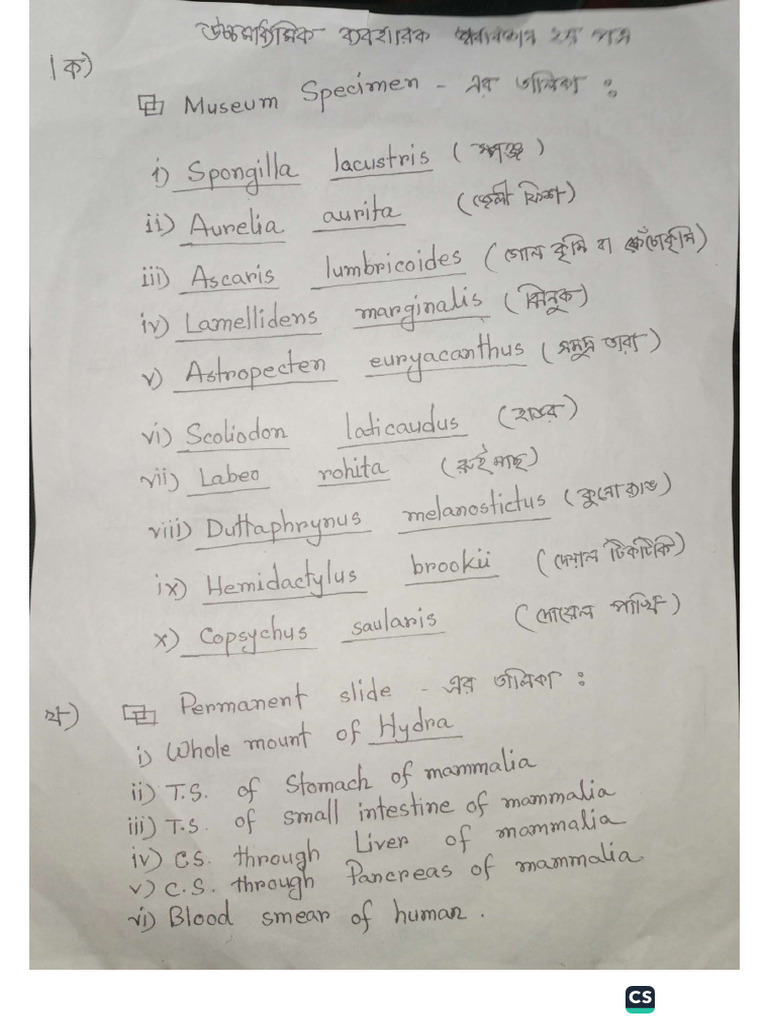 উচ্চমাধ্যমিক ব্যবহারিক ২য় পত্র
১ক)
Museum Specimen - এর তালিকা :
i) Spongilla lacustris (স্পঞ্জ)
ii) Aurelia aurita (জেলী ফিশ)
iii) Ascaris lumbricoides (গোল কৃমি বা কেঁচোকৃমি)
iv) Lamellidens marginalis (ঝিনুক)
v) Astropecten euryacanthus (সমুদ্র তারা)
vi) Scoliodon laticaudus (হাঙর)
vii) Labeo rohita (রুই মাছ)
viii) Duttaphrynus melanostictus (কুনো ব্যাঙ)
ix) Hemidactylus brookii (দেয়াল টিকটিকি)
x) Copsychus saularis (দোয়েল পাখি)
খ) Permanent slide - এর তালিকা :
i) Whole mount of Hydra
ii) T.S. of Stomach of mammalia
iii) T.S. of small intestine of mammalia
iv) C.S. through Liver of mammalia
v) C.S. through Pancreas of mammalia
vi) Blood smear of human.
CS